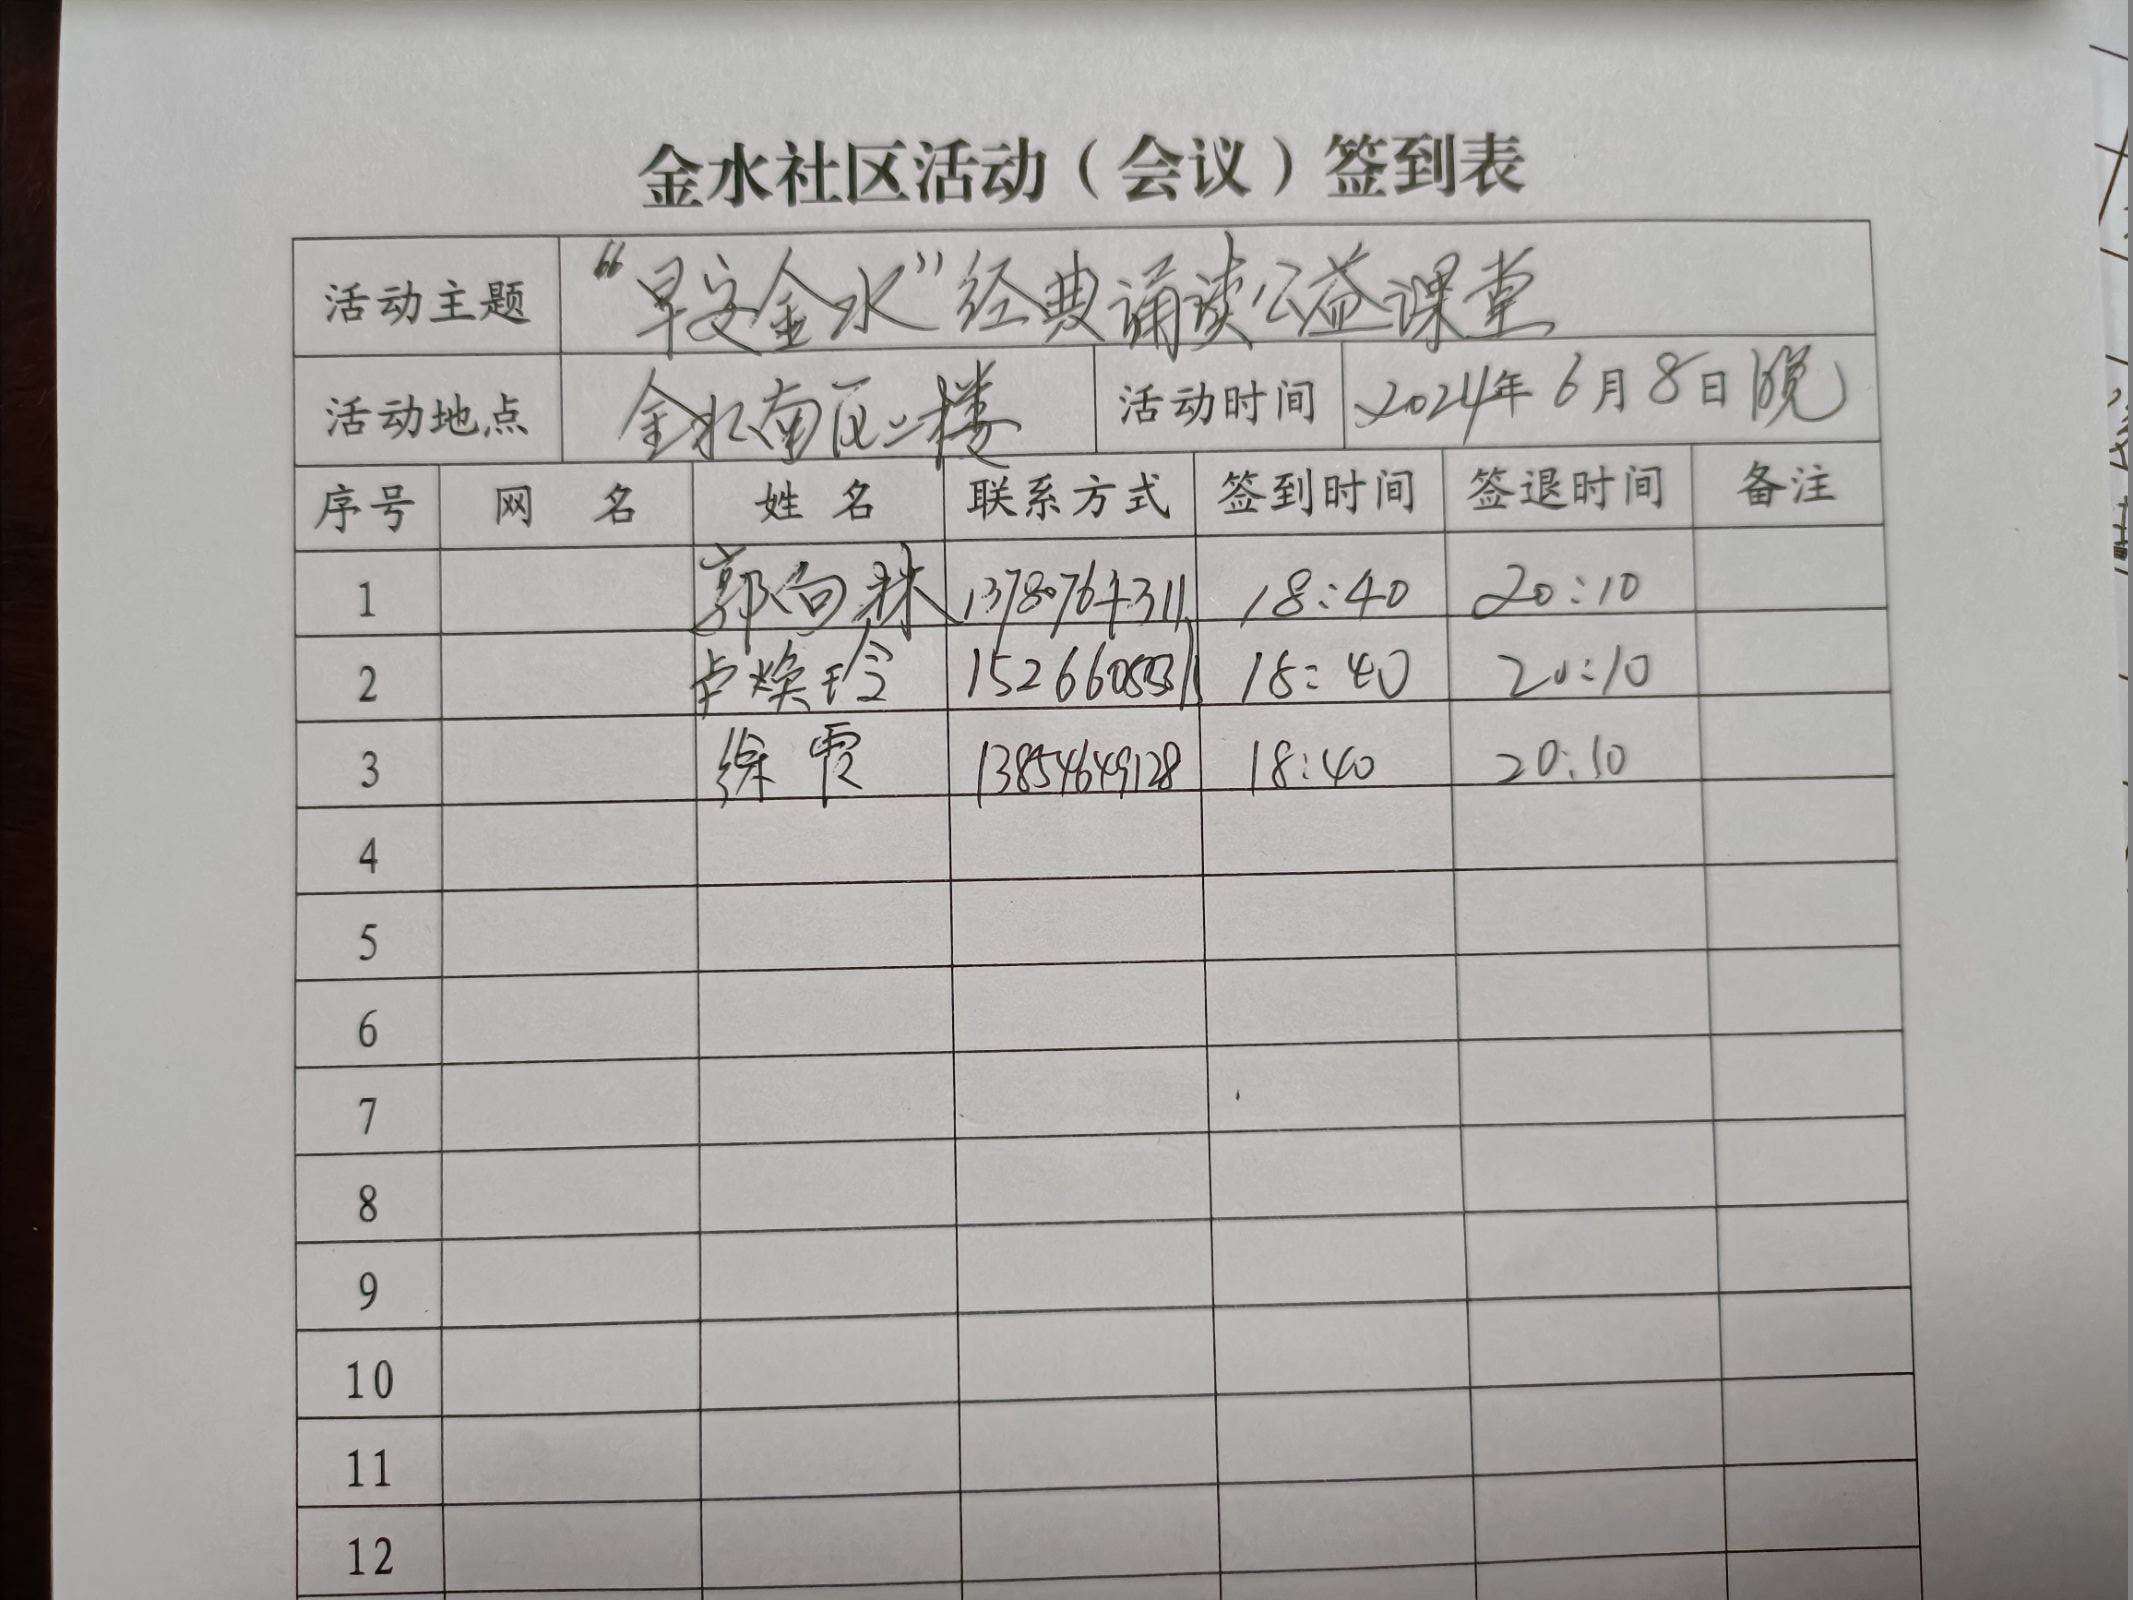 金水社区活动（会议）签到表
活动主题 “早安金水”经典诵读公益课堂
活动地点 金水南区二楼 活动时间 2024年6月8日晚
序号 网 名 姓 名 联系方式 签到时间 签退时间 备注
1 郭向秣 18:40 20:10
2 卢焕玲 18:40 20:10
3 徐霞 13854649128 18:40 20:10
4
5
6
7
8
9
10
11
12